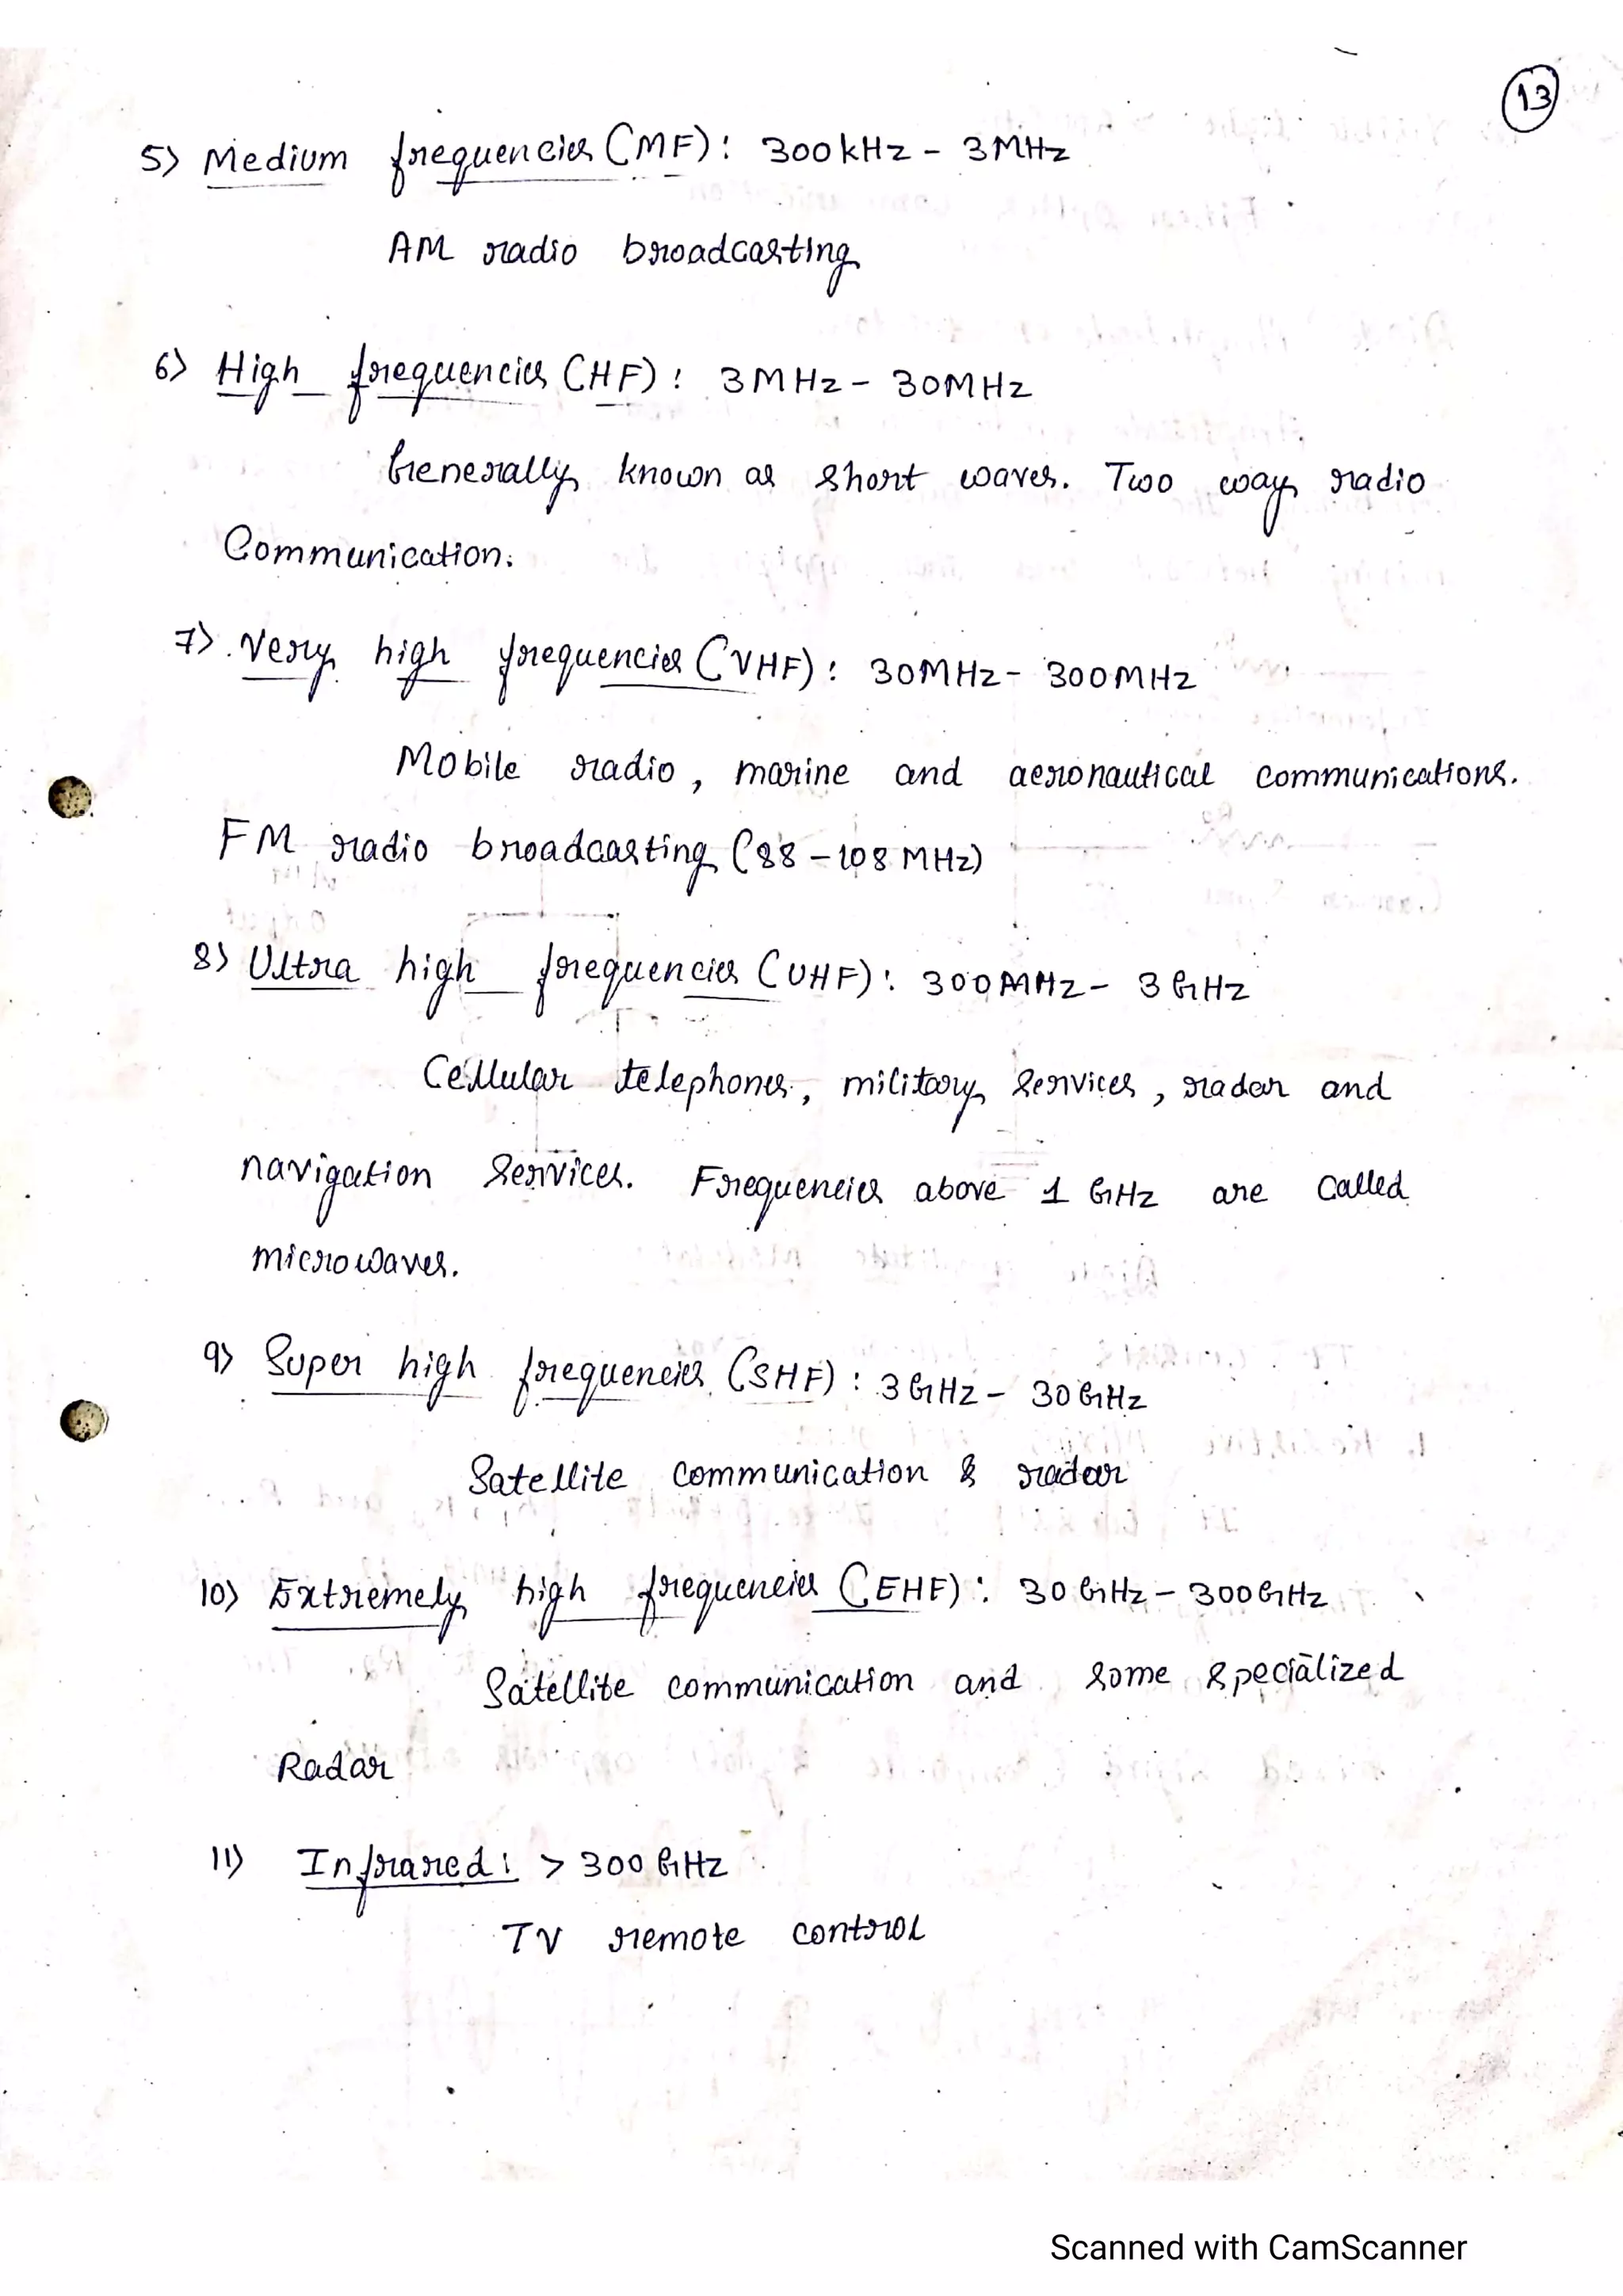 13
5) Medium frequencies (MF): 300kHz - 3MHz
AM radio broadcasting
6) High frequencies (HF): 3MHz - 30MHz
Generally known as short waves. Two way radio
Communication.
7) Very high frequencies (VHF): 30MHz - 300MHz
Mobile radio, marine and aeronautical communications.
FM radio broadcasting (88 - 108 MHz)
8) Ultra high frequencies (UHF): 300MHz - 3 GHz
Cellular telephones, military services, radar and
navigation services. Frequencies above 1 GHz are called
microwaves.
9) Super high frequencies (SHF): 3GHz - 30GHz
Satellite communication & radar
10) Extremely high frequencies (EHF): 30GHz - 300GHz
Satellite communication and some specialized
Radar
11) Infrared: > 300 GHz
TV remote control
Scanned with CamScanner